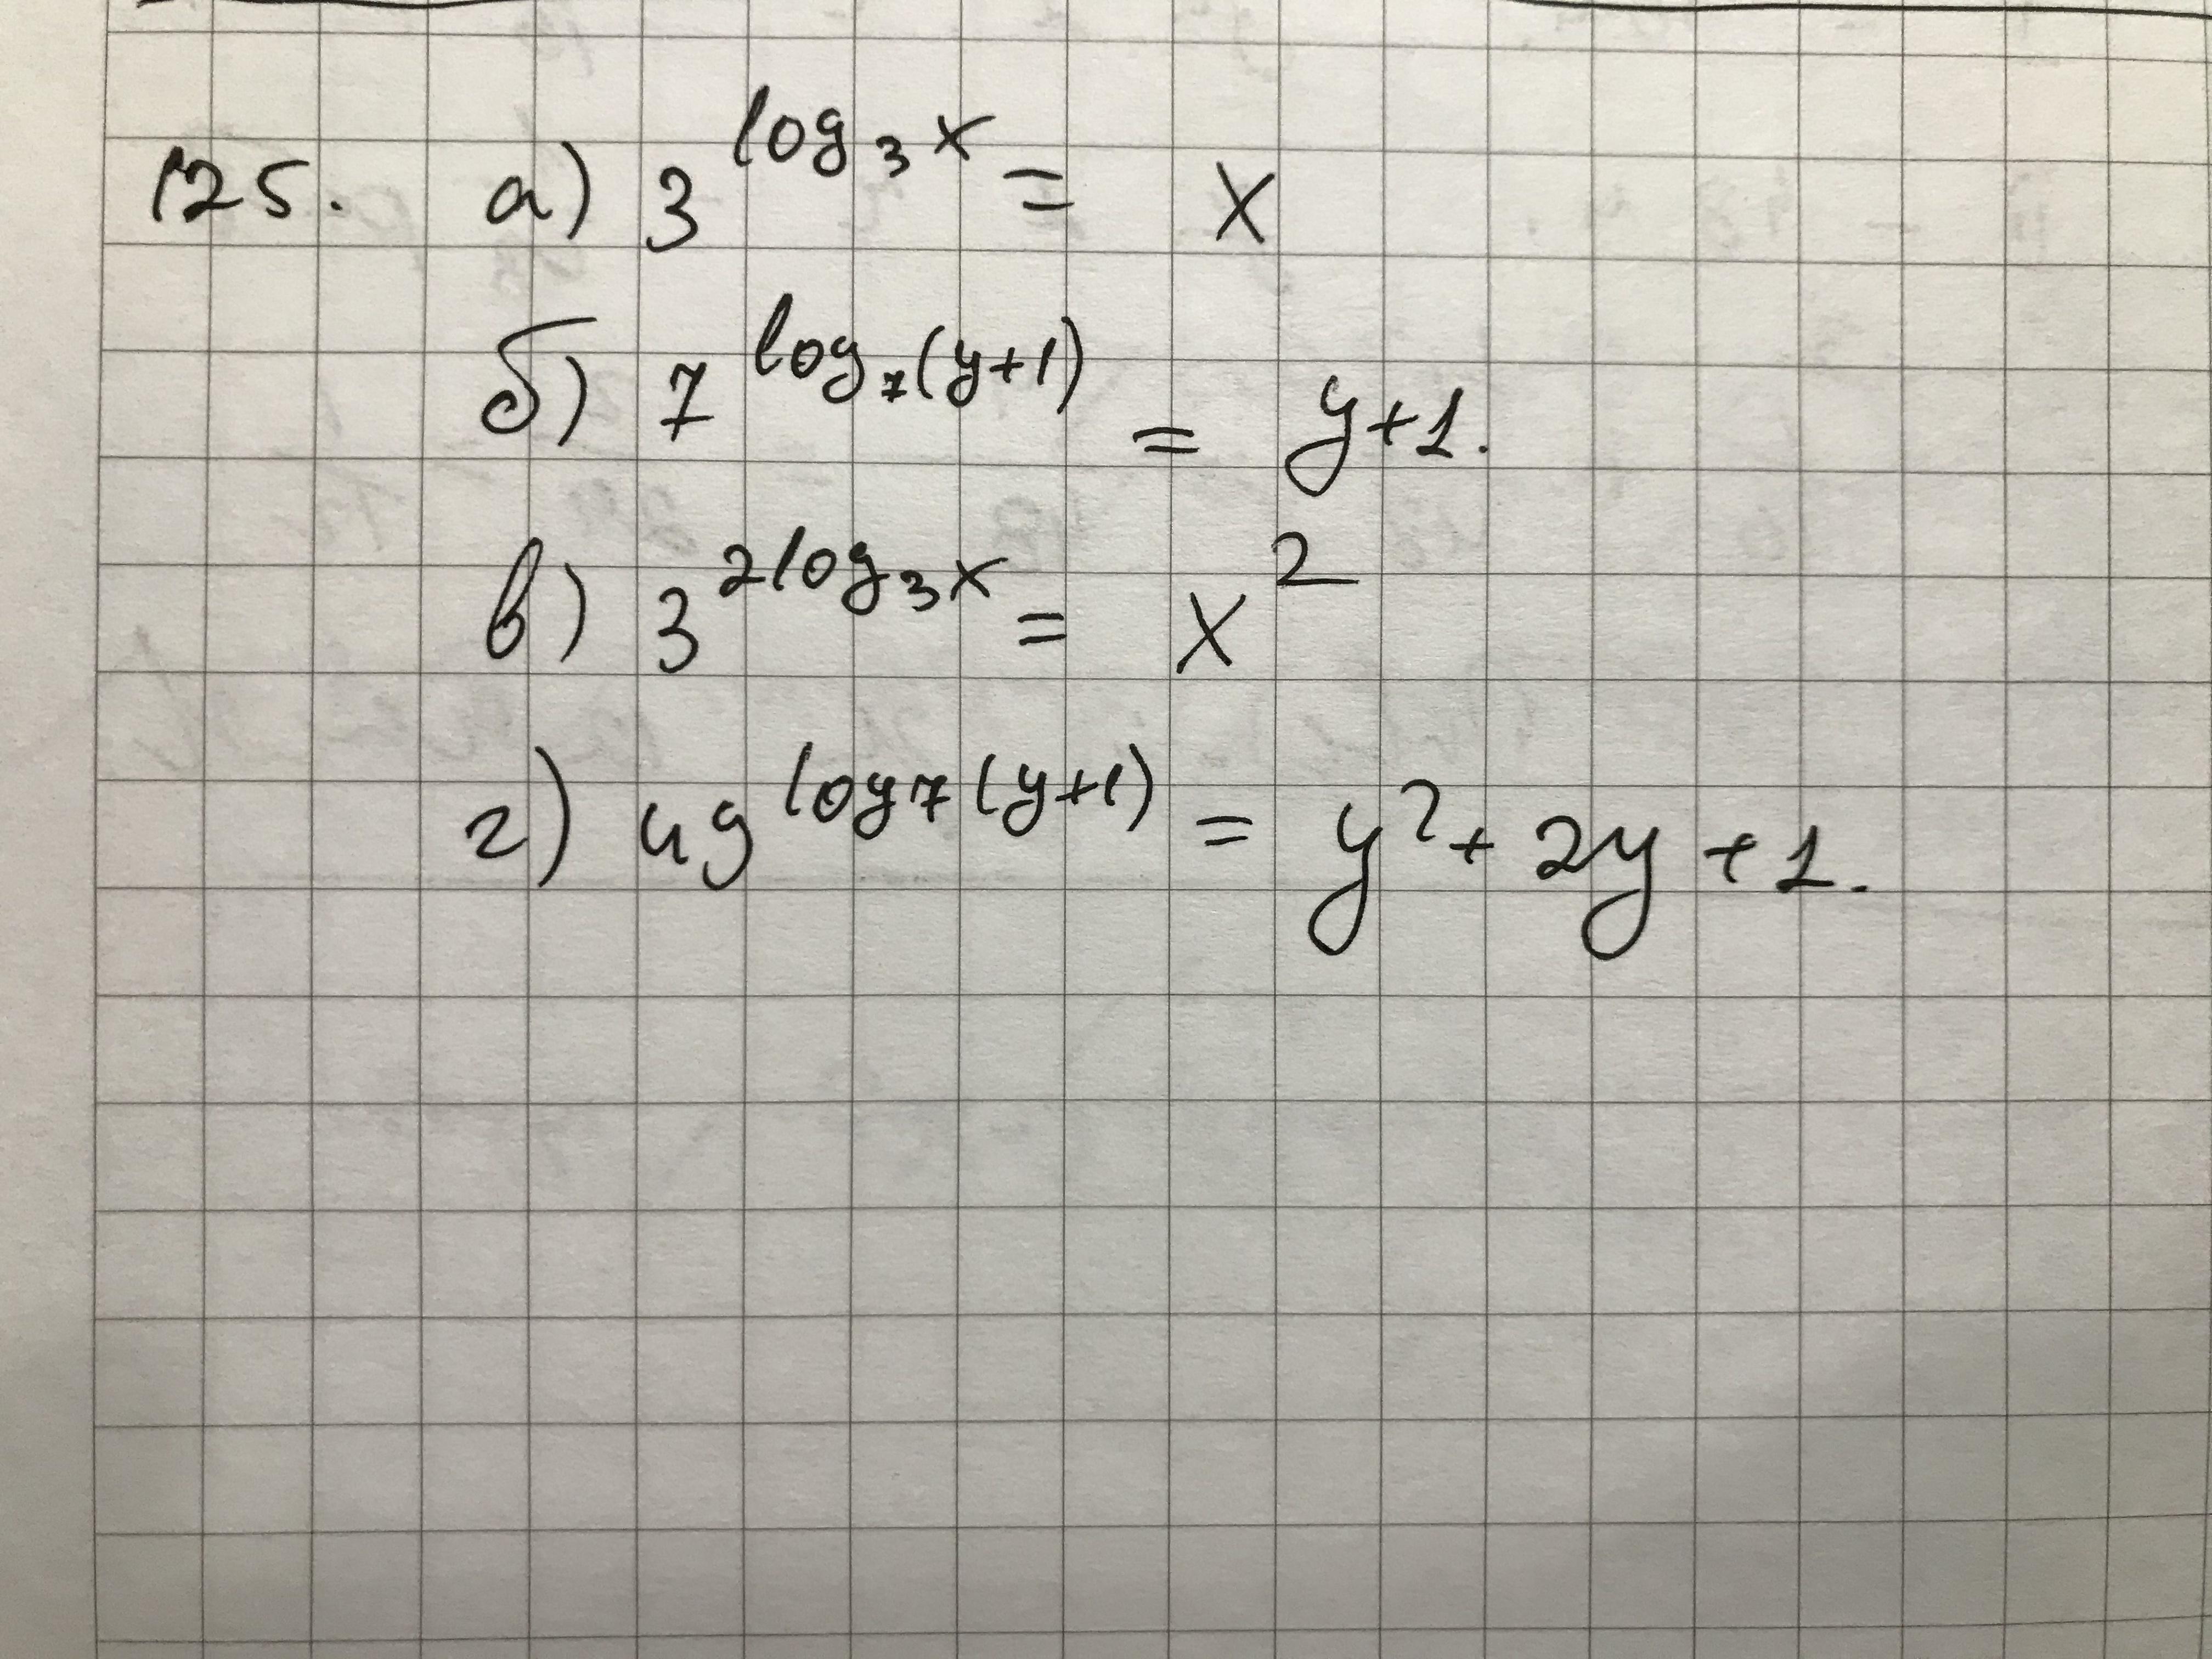 125. а) 3^{log_3 x} = x
б) 7^{log_7 (y+1)} = y+1.
в) 3^{2log_3 x} = x^2
г) 49^{log_7 (y+1)} = y^2 + 2y + 1.